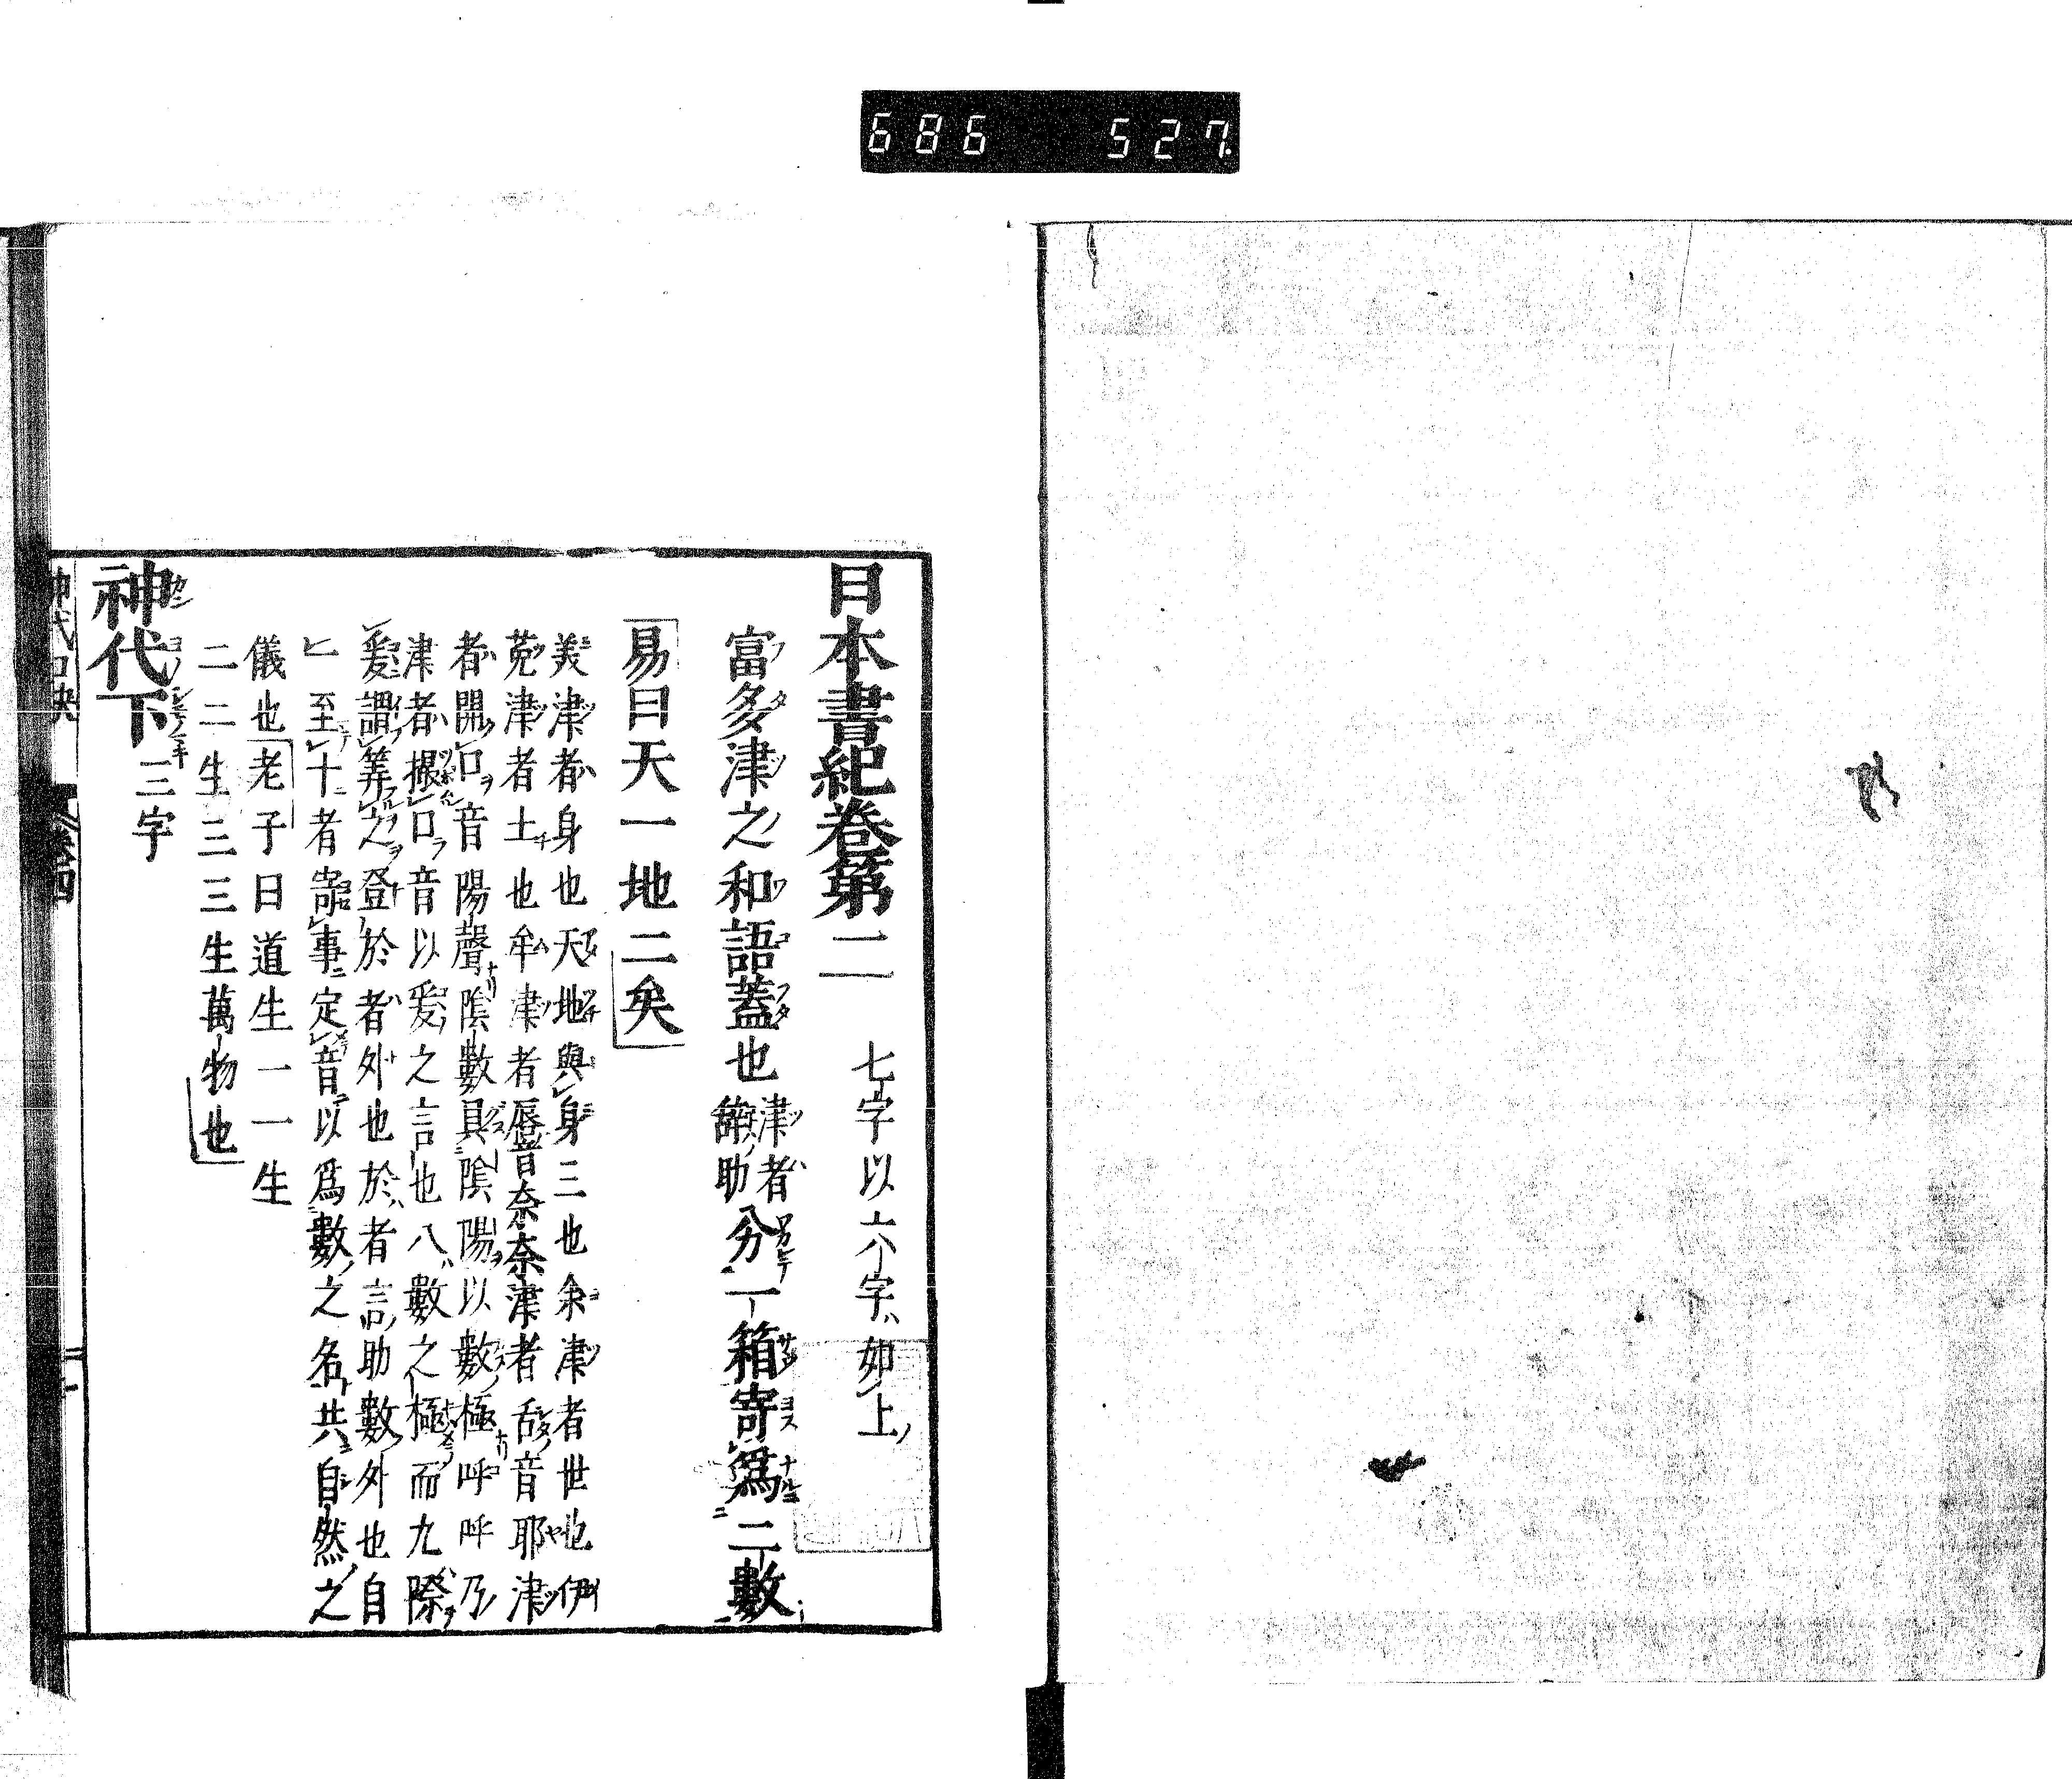 686 527
日本書紀卷第二 七字以六字如上
富多津之和語蓋也津者辭助分一箱寄爲二數
易曰天一地二矣
美津者身也天地與身三也余津者世也伊
菟津者土也牟津者唇音奈奈津者舌音耶津
者開口音陽聲陰數具陰陽以數極呼呼乃
津者撮口音以爰之言也八數之極而九際
爰謂筭之登於者外也於者言助數外也自
七至十者寄事定音以爲數之名共自然之
儀也老子曰道生一一生
二二生三三生萬物也
神代下三字
神代口訣 卷四 一